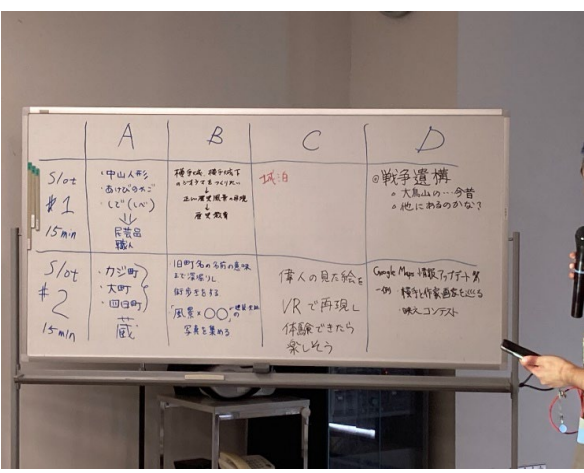 A B C D
Slot
#1
15min
・中山人形
・あけびのかご
・しど(しべ)
⇓
民芸品
職人
横手城、横手城下
のジオラマをつくりたい
↓
正しい歴史風景の再現
↓
歴史教育
城泊
◎戦争遺構
○大鳥山の…今昔
○他にあるのかな?
Slot
#2
15min
・カジ町
・大町
・四日町
蔵
旧町名の名前の意味
まで深堀りし
街歩きをする
「風景×○○」の
写真を集める
偉人の見た絵を
VRで再現し
体験できたら
楽しそう
Google Maps 情報アップデート
一例 横手と作家画家を巡る
映えコンテスト